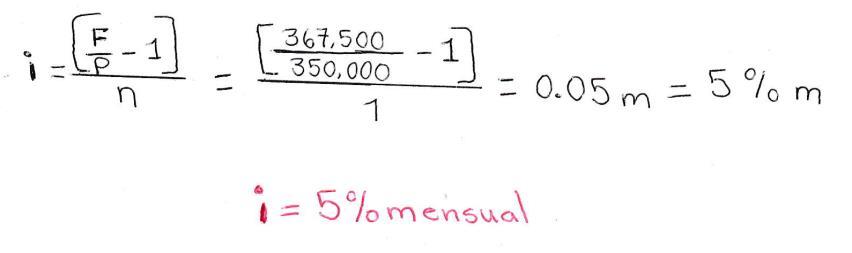 i = [F/P - 1]/n = [367,500/350,000 - 1]/1 = 0.05 m = 5% m
i = 5% mensual